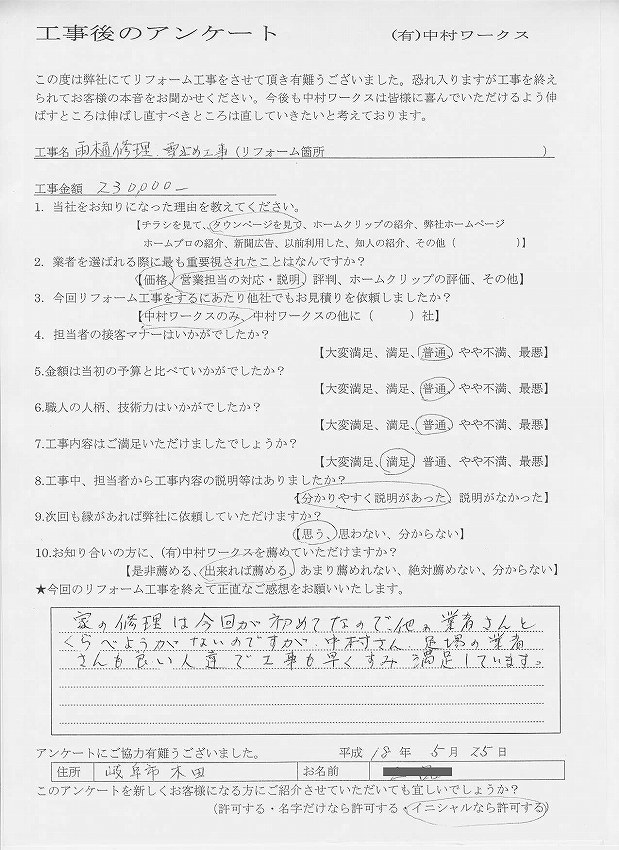 工事後のアンケート (有)中村ワークス
この度は弊社にてリフォーム工事をさせて頂き有難うございました。恐れ入りますが工事を終え
られてお客様の本音をお聞かせください。今後も中村ワークスは皆様に喜んでいただけるよう伸
ばすところは伸ばし直すべきところは直していきたいと考えております。
工事名 雨樋修理.雪止め工事(リフォーム箇所 )
工事金額 230,000-
1. 当社をお知りになった理由を教えてください。
【チラシを見て、タウンページを見て、ホームクリップの紹介、弊社ホームページ
ホームプロの紹介、新聞広告、以前利用した、知人の紹介、その他( )】
2. 業者を選ばれる際に最も重要視されたことはなんですか?
【価格、営業担当の対応・説明、評判、ホームクリップの評価、その他】
3. 今回リフォーム工事をするにあたり他社でもお見積りを依頼しましたか?
【中村ワークスのみ、中村ワークスの他に( )社】
4. 担当者の接客マナーはいかがでしたか?
【大変満足、満足、普通、やや不満、最悪】
5.金額は当初の予算と比べていかがでしたか?
【大変満足、満足、普通、やや不満、最悪】
6.職人の人柄、技術力はいかがでしたか?
【大変満足、満足、普通、やや不満、最悪】
7.工事内容はご満足いただけましたでしょうか?
【大変満足、満足、普通、やや不満、最悪】
8.工事中、担当者から工事内容の説明等はありましたか?
【分かりやすく説明があった、説明がなかった】
9.次回も縁があれば弊社に依頼していただけますか?
【思う、思わない、分からない】
10.お知り合いの方に、(有)中村ワークスを薦めていただけますか?
【是非薦める、出来れば薦める、あまり薦めれない、絶対薦めない、分からない】
★今回のリフォーム工事を終えて正直なご感想をお願いいたします。
家の修理は今回が初めてなので、他の業者さんと
くらべようがないのですが 中村さん 足場の業者
さんも良い人達で工事も早くすみ 満足しています。
アンケートにご協力有難うございました。 平成 18 年 5 月 25 日
住所 岐阜市木田 お名前
このアンケートを新しくお客様になる方にご紹介させていただいても宜しいでしょうか?
(許可する・名字だけなら許可する・イニシャルなら許可する)